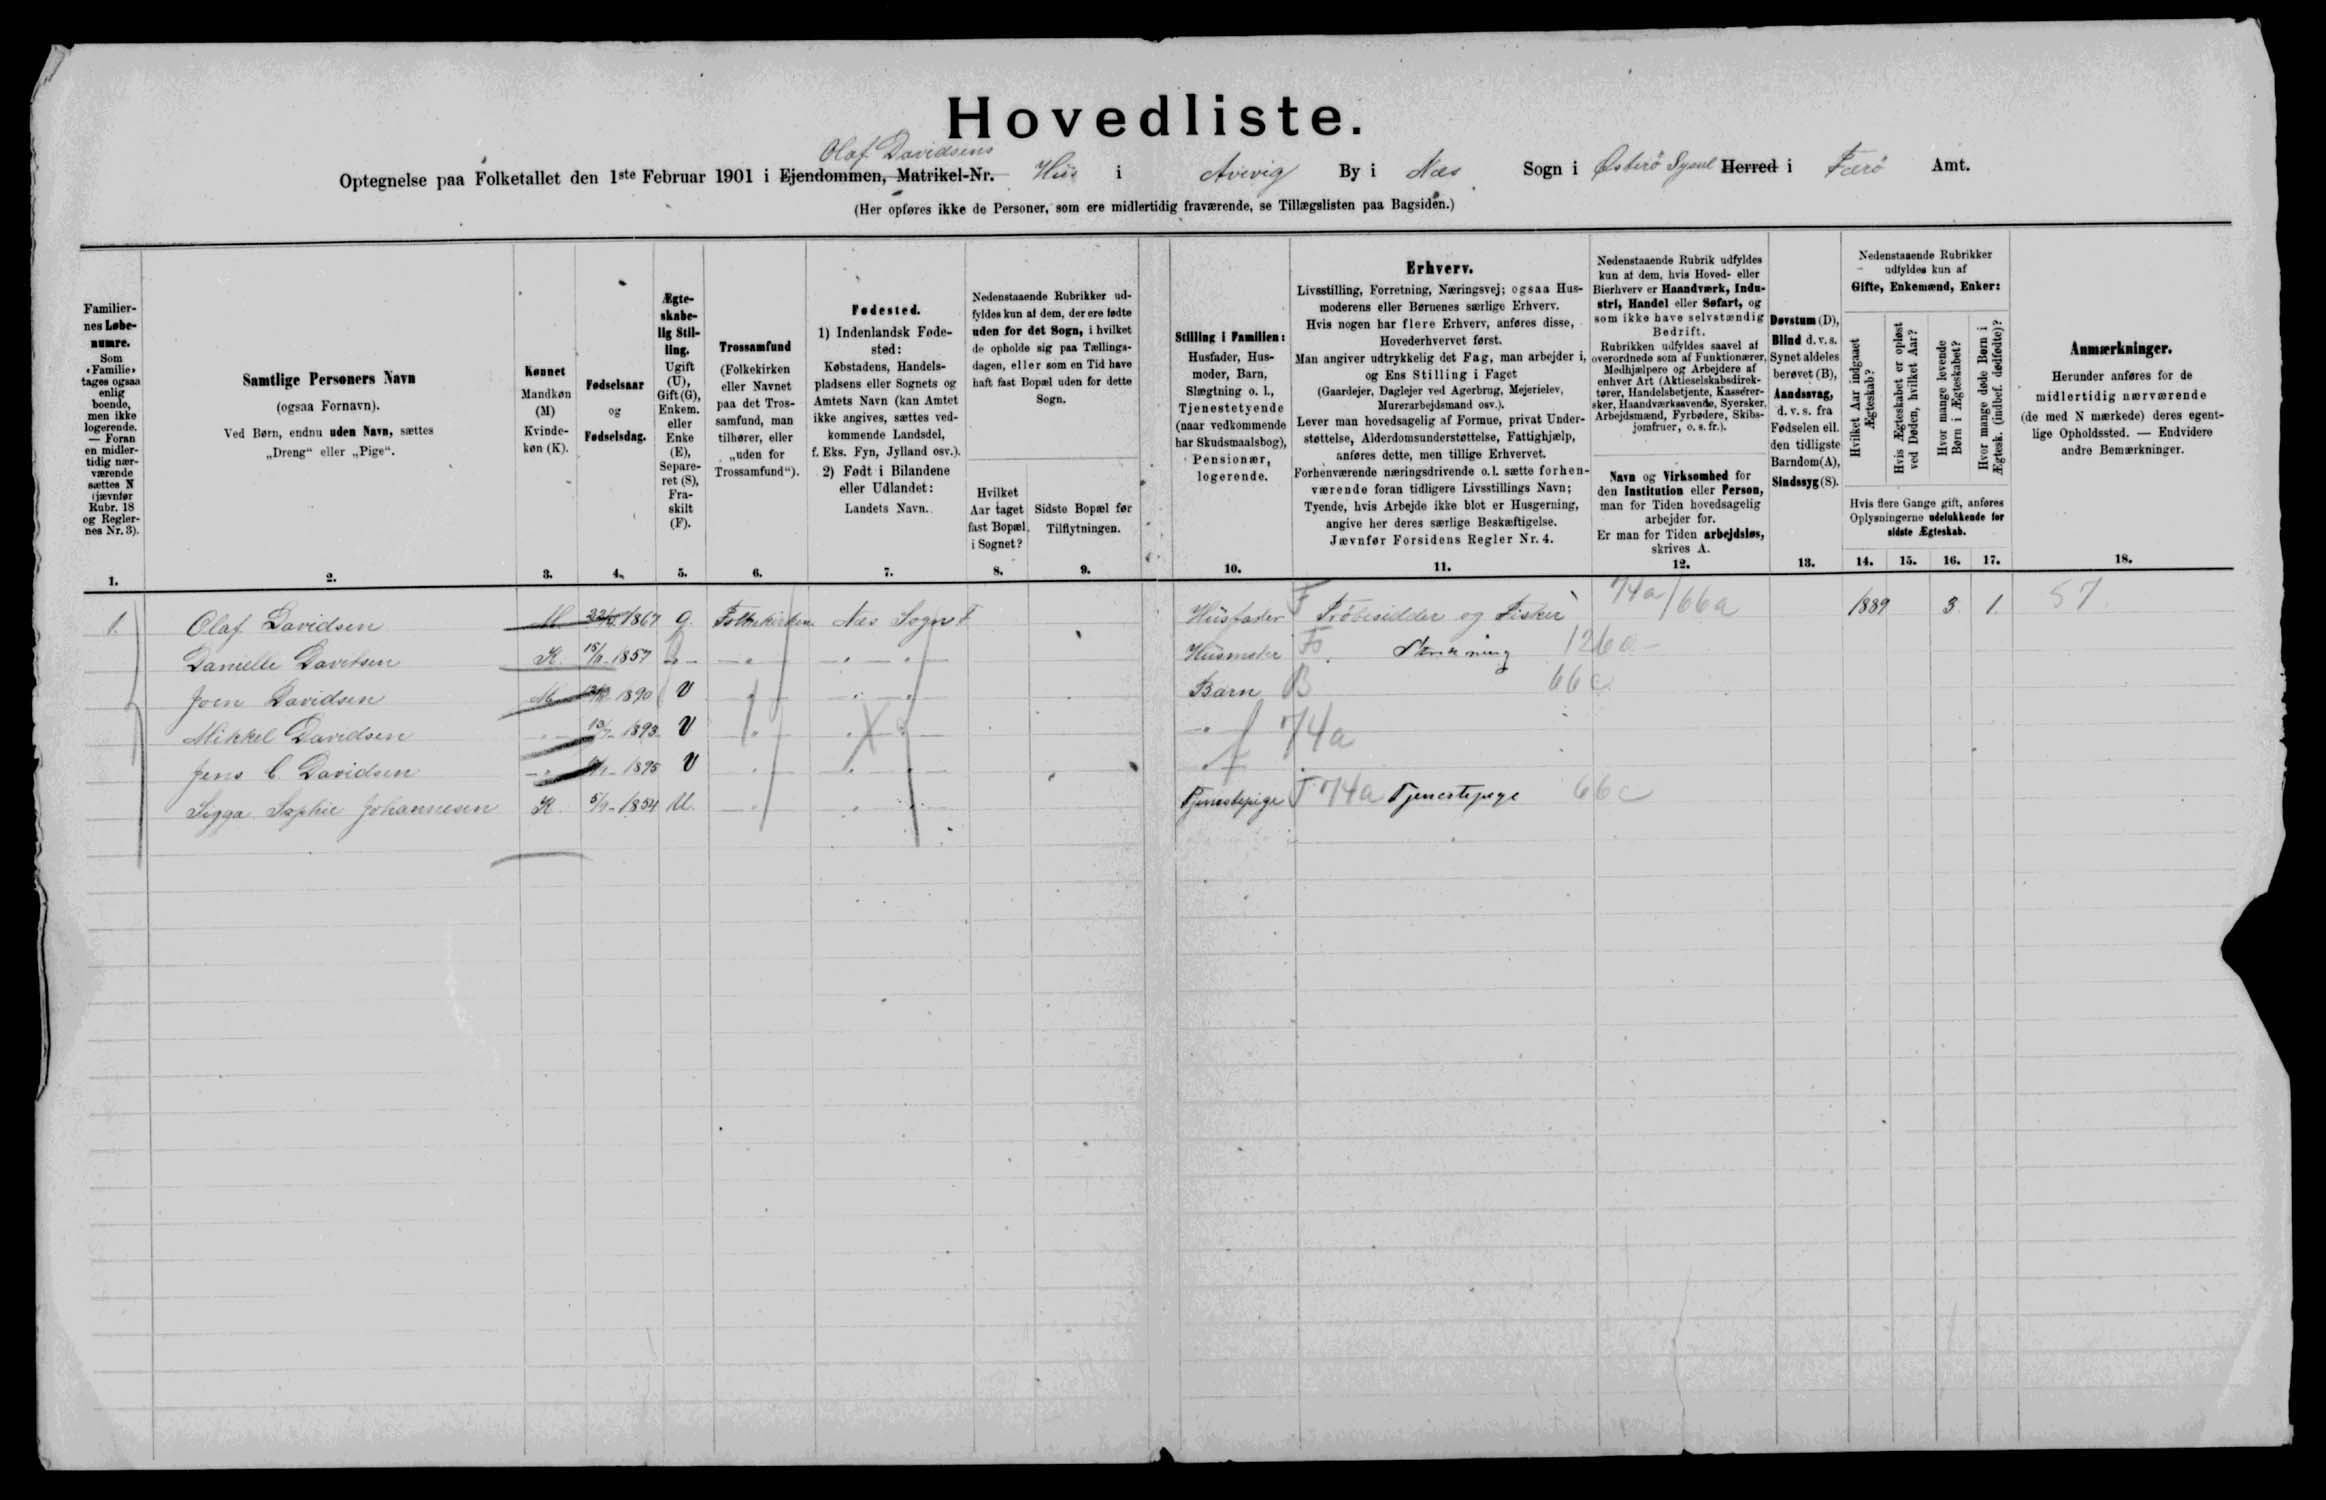 Hovedliste.
Olaf Davidsens
Optegnelse paa Folketallet den 1ste Februar 1901 i Ejendommen, Matrikel-Nr. Hus i Avevig By i Næs Sogn i Østerö Sysel Herred i Færö Amt.
(Her opføres ikke de Personer, som ere midlertidig fraværende, se Tillægslisten paa Bagsiden.)
Familiernes Løbenumre.
Som «Familie» tages ogsaa enlig boende, men ikke logerende. — Foran en midlertidig nærværende sættes N (jævnfør Rubr. 18 og Reglernes Nr. 3).
1.
Samtlige Personers Navn
(ogsaa Fornavn).
Ved Børn, endnu uden Navn, sættes
„Dreng“ eller „Pige“.
2.
Kønnet
Mandkøn (M)
Kvindekøn (K).
3.
Fødselsaar
og
Fødselsdag.
4.
Ægteskabelig Stilling.
Ugift (U), Gift (G), Enkem. eller Enke (E), Separeret (S), Fraskilt (F).
5.
Trossamfund
(Folkekirken eller Navnet paa det Trossamfund, man tilhører, eller „uden for Trossamfund“).
6.
Fødested.
1) Indenlandsk Fødested:
Købstadens, Handelspladsens eller Sognets og Amtets Navn (kan Amtet ikke angives, sættes vedkommende Landsdel, f. Eks. Fyn, Jylland osv.).
2) Født i Bilandene eller Udlandet:
Landets Navn.
7.
Nedenstaaende Rubrikker udfyldes kun af dem, der ere fødte uden for det Sogn, i hvilket de opholde sig paa Tællingsdagen, eller som en Tid have haft fast Bopæl uden for dette Sogn.
Hvilket Aar taget fast Bopæl i Sognet?
8.
Sidste Bopæl før Tilflytningen.
9.
Stilling i Familien:
Husfader, Husmoder, Barn, Slægtning o. l., Tjenestetyende (naar vedkommende har Skudsmaalsbog), Pensionær, logerende.
10.
Erhverv.
Livsstilling, Forretning, Næringsvej; ogsaa Husmoderens eller Børnenes særlige Erhverv.
Hvis nogen har flere Erhverv, anføres disse, Hovederhvervet først.
Man angiver udtrykkelig det Fag, man arbejder i, og Ens Stilling i Faget
(Gaardejer, Daglejer ved Agerbrug, Mejerielev, Murerarbejdsmand osv.).
Lever man hovedsagelig af Formue, privat Understøttelse, Alderdomsunderstøttelse, Fattighjælp, anføres dette, men tillige Erhvervet.
Forhenværende næringsdrivende o. l. sætte forhenværende foran tidligere Livsstillings Navn;
Tyende, hvis Arbejde ikke blot er Husgerning, angive her deres særlige Beskæftigelse.
Jævnfør Forsidens Regler Nr. 4.
11.
Nedenstaaende Rubrik udfyldes kun af dem, hvis Hoved- eller Bierhverv er Haandværk, Industri, Handel eller Søfart, og som ikke have selvstændig Bedrift.
Rubrikken udfyldes saavel af overordnede som af Funktionærer, Medhjælpere og Arbejdere af enhver Art (Aktieselskabsdirektører, Handelsbetjente, Kassérersker, Haandværkssvende, Syersker, Arbejdsmænd, Fyrbødere, Skibsjomfruer, o. s. fr.).
Navn og Virksomhed for den Institution eller Person, man for Tiden hovedsagelig arbejder for.
Er man for Tiden arbejdsløs, skrives A.
12.
Døvstum (D), Blind d. v. s. Synet aldeles berøvet (B), Aandssvag, d. v. s. fra Fødselen ell. den tidligste Barndom (A), Sindssyg (S).
13.
Nedenstaaende Rubrikker udfyldes kun af
Gifte, Enkemænd, Enker:
Hvilket Aar indgaaet Ægteskab?
Hvis Ægteskabet er opløst ved Døden, hvilket Aar?
Hvor mange levende Børn i Ægteskabet?
Hvor mange døde Børn i Ægtesk. (indbef. dødfødte)?
Hvis flere Gange gift, anføres Oplysningerne udelukkende for sidste Ægteskab.
14. 15. 16. 17.
Anmærkninger.
Herunder anføres for de midlertidig nærværende (de med N mærkede) deres egentlige Opholdssted. — Endvidere andre Bemærkninger.
18.
1. Olaf Davidsen M. 1867 G. Folkekirken Næs Sogn F Husfader F og Fisker 74a/66a 1889 3 1. 57.
Danielle Davidsen K. 1857 Husmoder 126a
Joen Davidsen M 1890 U Barn B 66c
Mikkel Davidsen 1893 U 74a
Jens C. Davidsen 1895 U
Sigga Sophie Johannesen K. 1854 U. Tjenestepige T 74a Tjenestepige 66c